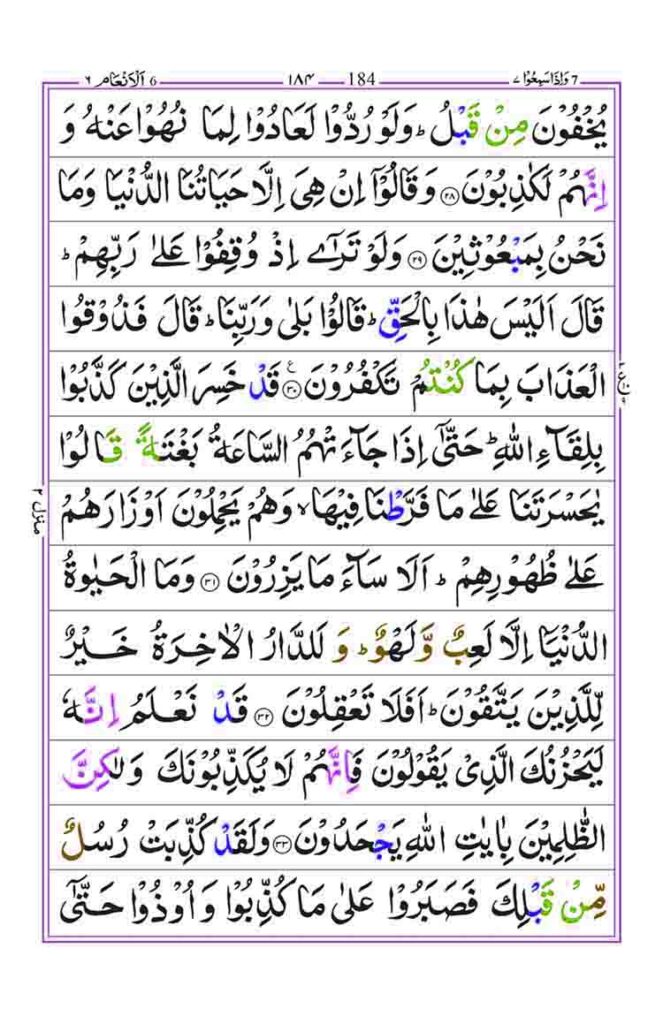 وَاِذَاسَمِعُوْا ٧ 7 184 ١٨٤ اَلْاَنْعَام ٦ 6
يُخْفُوْنَ مِنْ قَبْلُ ؕ وَلَوْ رُدُّوْا لَعَادُوْا لِمَا نُهُوْا عَنْهُ وَ
اِنَّهُمْ لَكٰذِبُوْنَ ۝٢٨ وَ قَالُوْۤا اِنْ هِىَ اِلَّا حَيَاتُنَا الدُّنْيَا وَمَا
نَحْنُ بِمَبْعُوْثِيْنَ ۝٢٩ وَلَوْ تَرٰٓى اِذْ وُقِفُوْا عَلٰى رَبِّهِمْ ؕ
قَالَ اَلَيْسَ هٰذَا بِالْحَقِّ ؕ قَالُوْا بَلٰى وَرَبِّنَا ؕ قَالَ فَذُوْقُوا
الْعَذَابَ بِمَا كُنْتُمْ تَكْفُرُوْنَ ۝٣٠ ع قَدْ خَسِرَ الَّذِيْنَ كَذَّبُوْا
بِلِقَآءِ اللّٰهِ ؕ حَتّٰٓى اِذَا جَآءَتْهُمُ السَّاعَةُ بَغْتَةً قَالُوْا
يٰحَسْرَتَنَا عَلٰى مَا فَرَّطْنَا فِيْهَا ۙ وَهُمْ يَحْمِلُوْنَ اَوْزَارَهُمْ
منزل ٢
عَلٰى ظُهُوْرِهِمْ ؕ اَلَا سَآءَ مَا يَزِرُوْنَ ۝٣١ وَمَا الْحَيٰوةُ
الدُّنْيَاۤ اِلَّا لَعِبٌ وَّ لَهْوٌ ؕ وَ لَلدَّارُ الْاٰخِرَةُ خَيْرٌ
لِّلَّذِيْنَ يَتَّقُوْنَ ؕ اَفَلَا تَعْقِلُوْنَ ۝٣٢ قَدْ نَعْلَمُ اِنَّهٗ
لَيَحْزُنُكَ الَّذِىْ يَقُوْلُوْنَ فَاِنَّهُمْ لَا يُكَذِّبُوْنَكَ وَلٰكِنَّ
الظّٰلِمِيْنَ بِاٰيٰتِ اللّٰهِ يَجْحَدُوْنَ ۝٣٣ وَلَقَدْ كُذِّبَتْ رُسُلٌ
مِّنْ قَبْلِكَ فَصَبَرُوْا عَلٰى مَا كُذِّبُوْا وَ اُوْذُوْا حَتّٰٓى